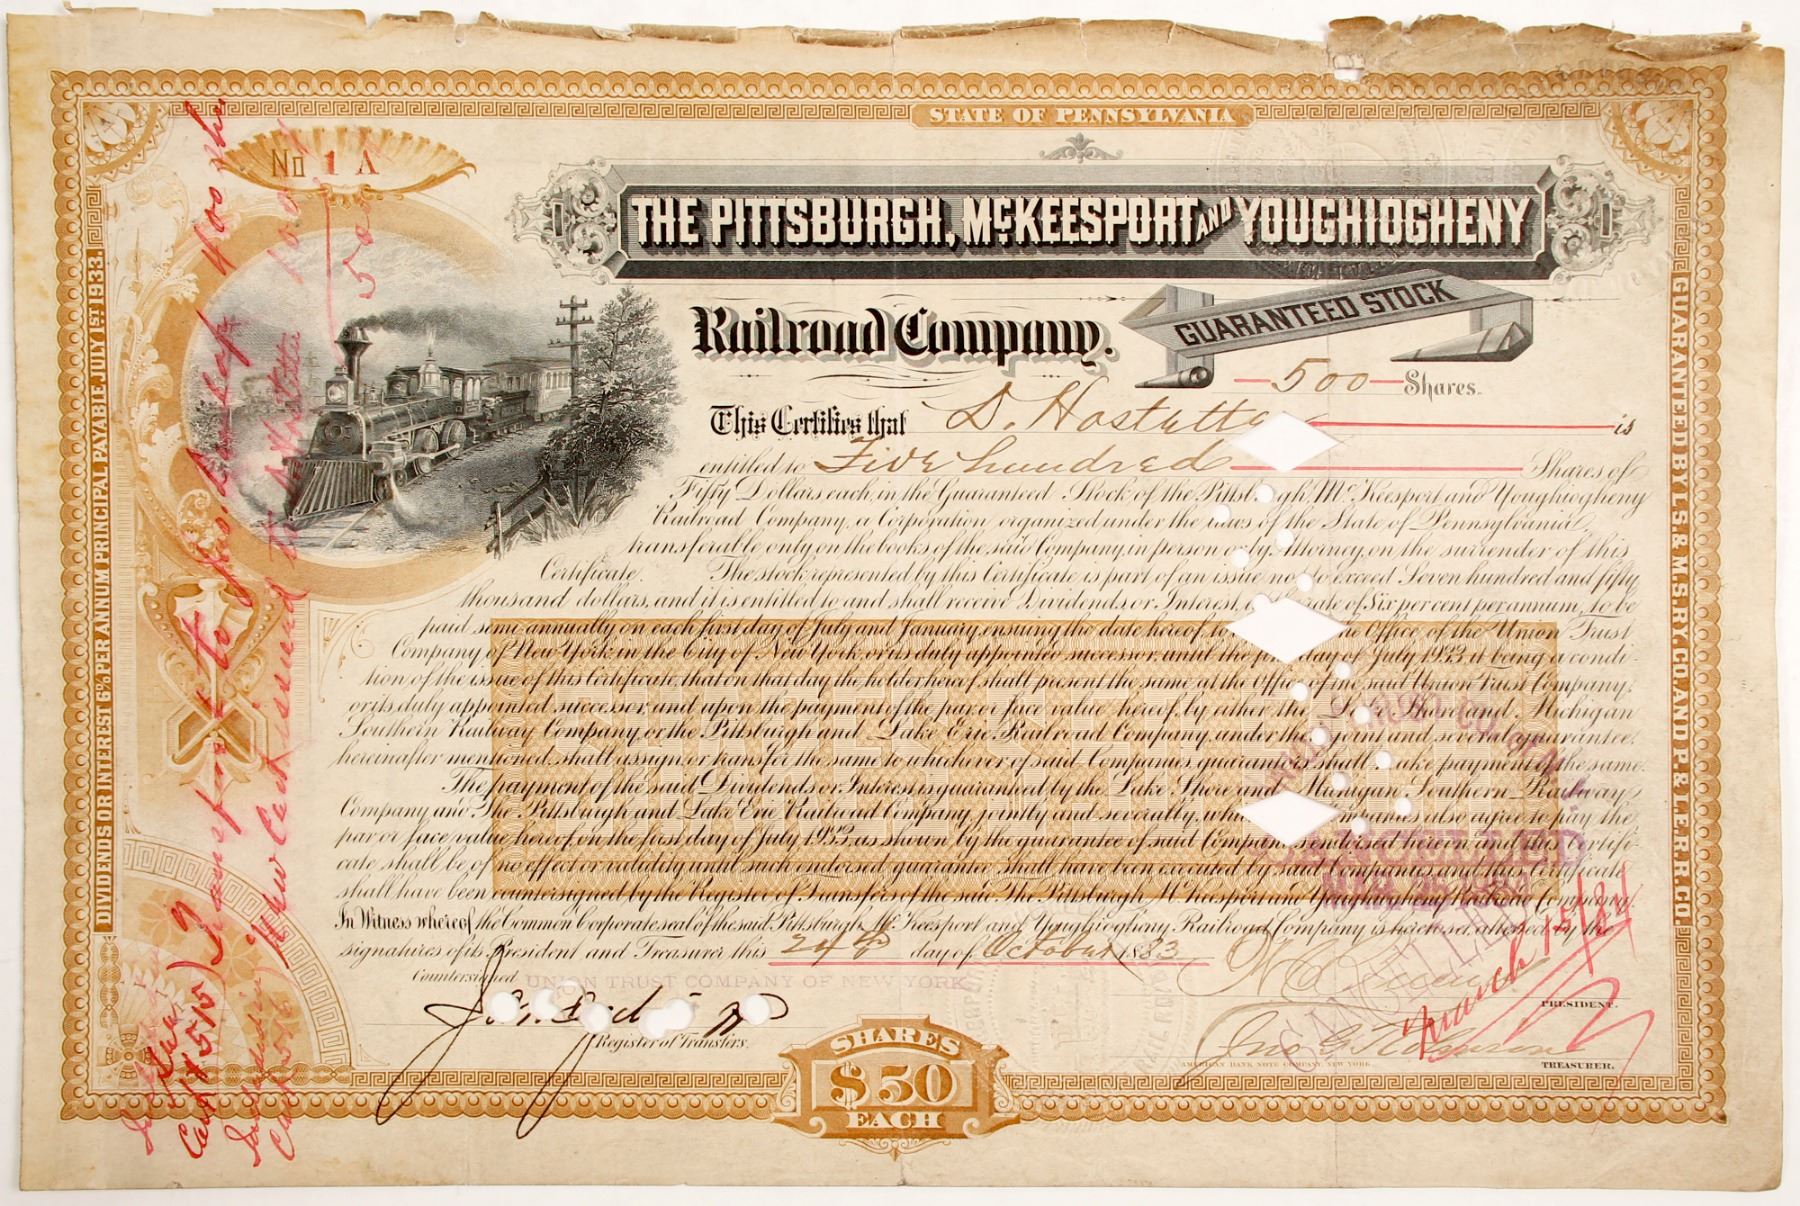 STATE OF PENNSYLVANIA
No 1 A
THE PITTSBURGH, McKEESPORT AND YOUGHIOGHENY
Railroad Company.
GUARANTEED STOCK
500 Shares.
This Certifies that D. Hostetter is
entitled to Five hundred Shares of
Fifty Dollars each, in the Guaranteed Stock of the Pittsburgh, McKeesport and Youghiogheny
Railroad Company, a Corporation organized under the laws of the State of Pennsylvania,
transferable only on the books of the said Company, in person or by Attorney, on the surrender of this
Certificate. The stock represented by this Certificate is part of an issue not to exceed Seven hundred and fifty
thousand dollars, and it is entitled to and shall receive Dividends or Interest, at the rate of Six per cent per annum, to be
paid semi-annually on each first day of July and January, ensuing the date hereof, to the Office of the Union Trust
Company of New York in the City of New York, or its duly appointed successor, until the first day of July 1933, it being a condi-
tion of the issue of this Certificate, that on that day the holder hereof shall present the same, at the Office of the said Union Trust Company,
or its duly appointed successor, and upon the payment of the par or face value hereof, by either the Lake Shore and Michigan
Southern Railway Company, or the Pittsburgh and Lake Erie Railroad Company, under the joint and several guarantee,
hereinafter mentioned, shall assign, or transfer the same to whichever of said Companies, guarantors, shall make payment of the same.
The payment of the said Dividends or Interest is guaranteed by the Lake Shore and Michigan Southern Railway
Company and The Pittsburgh and Lake Erie Railroad Company, jointly and severally, which Companies also agree to pay the
par or face value hereof, on the first day of July 1933, as shown by the guarantee of said Companies endorsed hereon and this Certifi-
cate shall be of no effect or validity until such endorsed guarantee shall have been executed by said Companies and this Certificate
shall have been countersigned by the Register of Transfers of the said The Pittsburgh McKeesport and Youghiogheny Railroad Company.
In Witness whereof the Common Corporate seal of the said Pittsburgh, McKeesport and Youghiogheny Railroad Company is hereto set, attested by the
signatures of its President and Treasurer this 24th day of October 1883
Countersigned
UNION TRUST COMPANY OF NEW YORK
Register of Transfers.
PRESIDENT.
Jno G. Robinson
TREASURER.
AMERICAN BANK NOTE COMPANY, NEW YORK.
SHARES
$50
EACH
DIVIDENDS OR INTEREST 6% PER ANNUM PRINCIPAL PAYABLE, JULY 1ST 1933.
GUARANTEED BY L.S. & M.S. RY. CO. AND P. & L.E. R.R. CO.
CANCELLED
CANCELLED
March 15/84
400 shs
100
500
Transfer to
New Cert issued to
Cert 4515